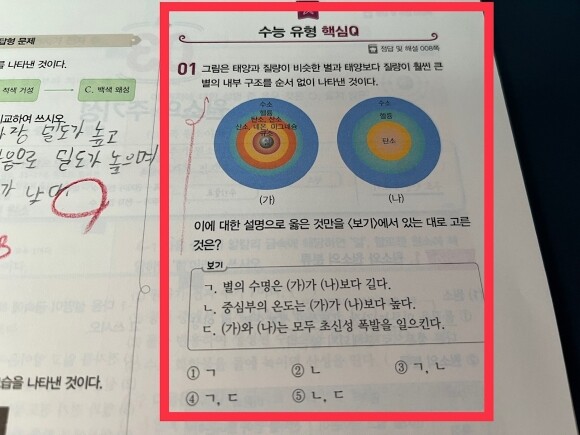 답형 문제
를 나타낸 것이다.
적색 거성
C. 백색 왜성
교하여 쓰시오.
밀도가 높고
밀도가 높으며
수능 유형 핵심Q
정답 및 해설 008쪽
01 그림은 태양과 질량이 비슷한 별과 태양보다 질량이 훨씬 큰
별의 내부 구조를 순서 없이 나타낸 것이다.
수소
헬륨
탄소, 산소
산소, 네온, 마그네슘
(가)
수소
헬륨
탄소
(나)
이에 대한 설명으로 옳은 것만을 <보기>에서 있는 대로 고른
것은?
보기
ㄱ. 별의 수명은 (가)가 (나)보다 길다.
ㄴ. 중심부의 온도는 (가)가 (나)보다 높다.
ㄷ. (가)와 (나)는 모두 초신성 폭발을 일으킨다.
① ㄱ ② ㄴ ③ ㄱ, ㄴ
④ ㄱ, ㄷ ⑤ ㄴ, ㄷ
습을 나타낸 것이다.